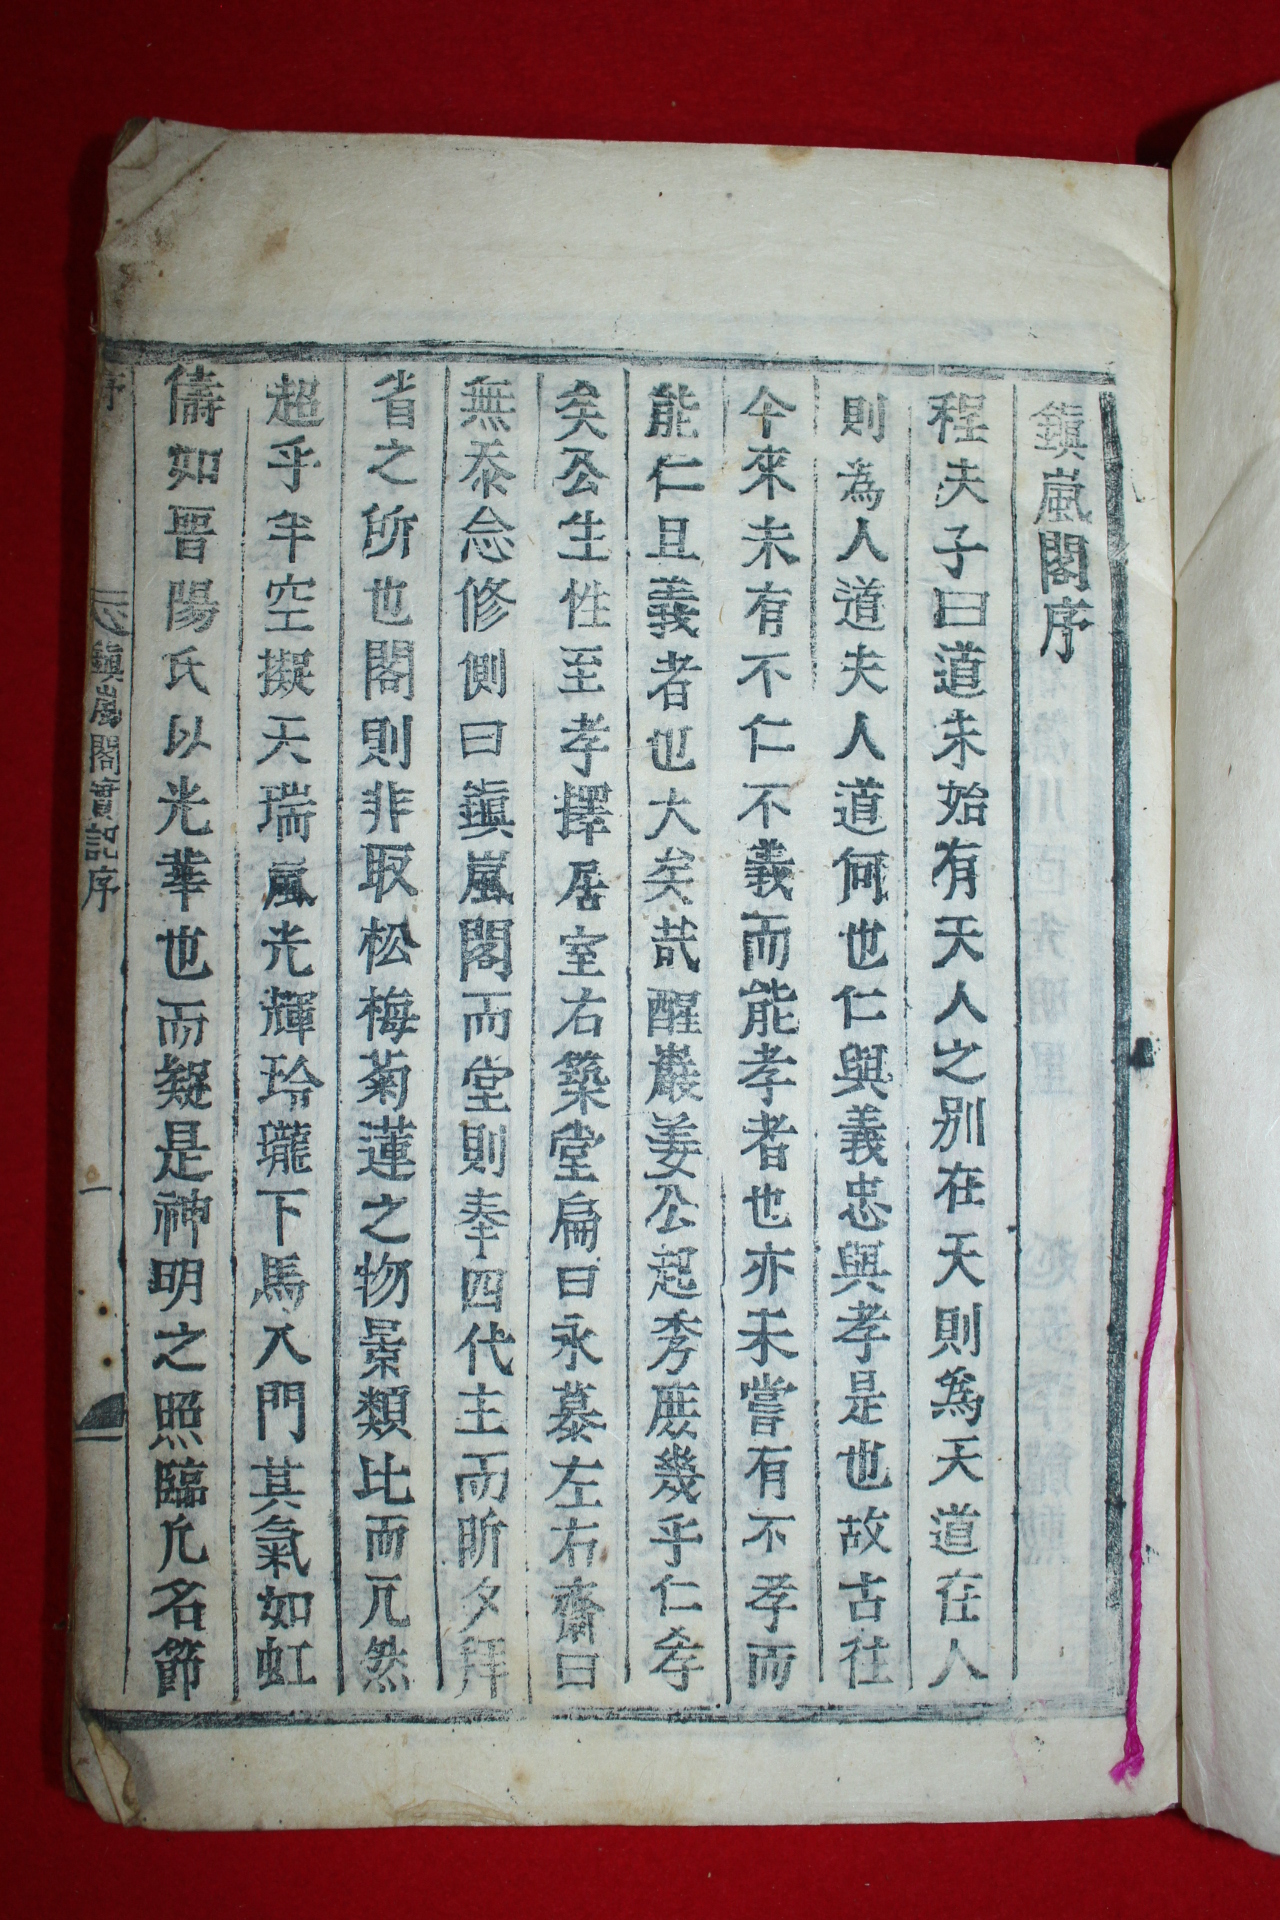 鎭嵐閣序
程夫子曰道未始有天人之別在天則為天道在人
則為人道夫人道何也仁與義忠與孝是也故古往
今來未有不仁不義而能孝者也亦未嘗有不孝而
能仁且義者也大矣哉醒巖姜公起秀庶幾乎仁孝
矣公生性至孝擇居室右築堂扁曰永慕左右齋曰
無忝念修側曰鎭嵐閣而堂則奉四代主而昕夕拜
省之所也閣則非取松梅菊蓮之物景類比而兀然
超乎半空擬天瑞嵐光輝玲瓏下馬入門其氣如虹
儔如晋陽氏以光華也而疑是神明之照臨凢名節
鎭嵐閣實記序
一